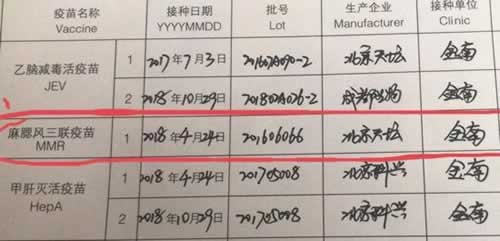 疫苗名称 接种日期 批号 生产企业 接种单位
Vaccine YYYYMMDD Lot Manufacturer Clinic
乙脑减毒活疫苗
JEV
1 2017年7月3日 201602A090-2 北京天坛 金南
2 2018年10月29日 201802A076-2 成都 金南
麻腮风三联疫苗
MMR
1 2018年4月24日 201606066 北京天坛 金南
甲肝灭活疫苗
HepA
1 2018年4月24日 201705008 北京科兴 金南
2 2018年10月29日 201705008 北京科兴 金南